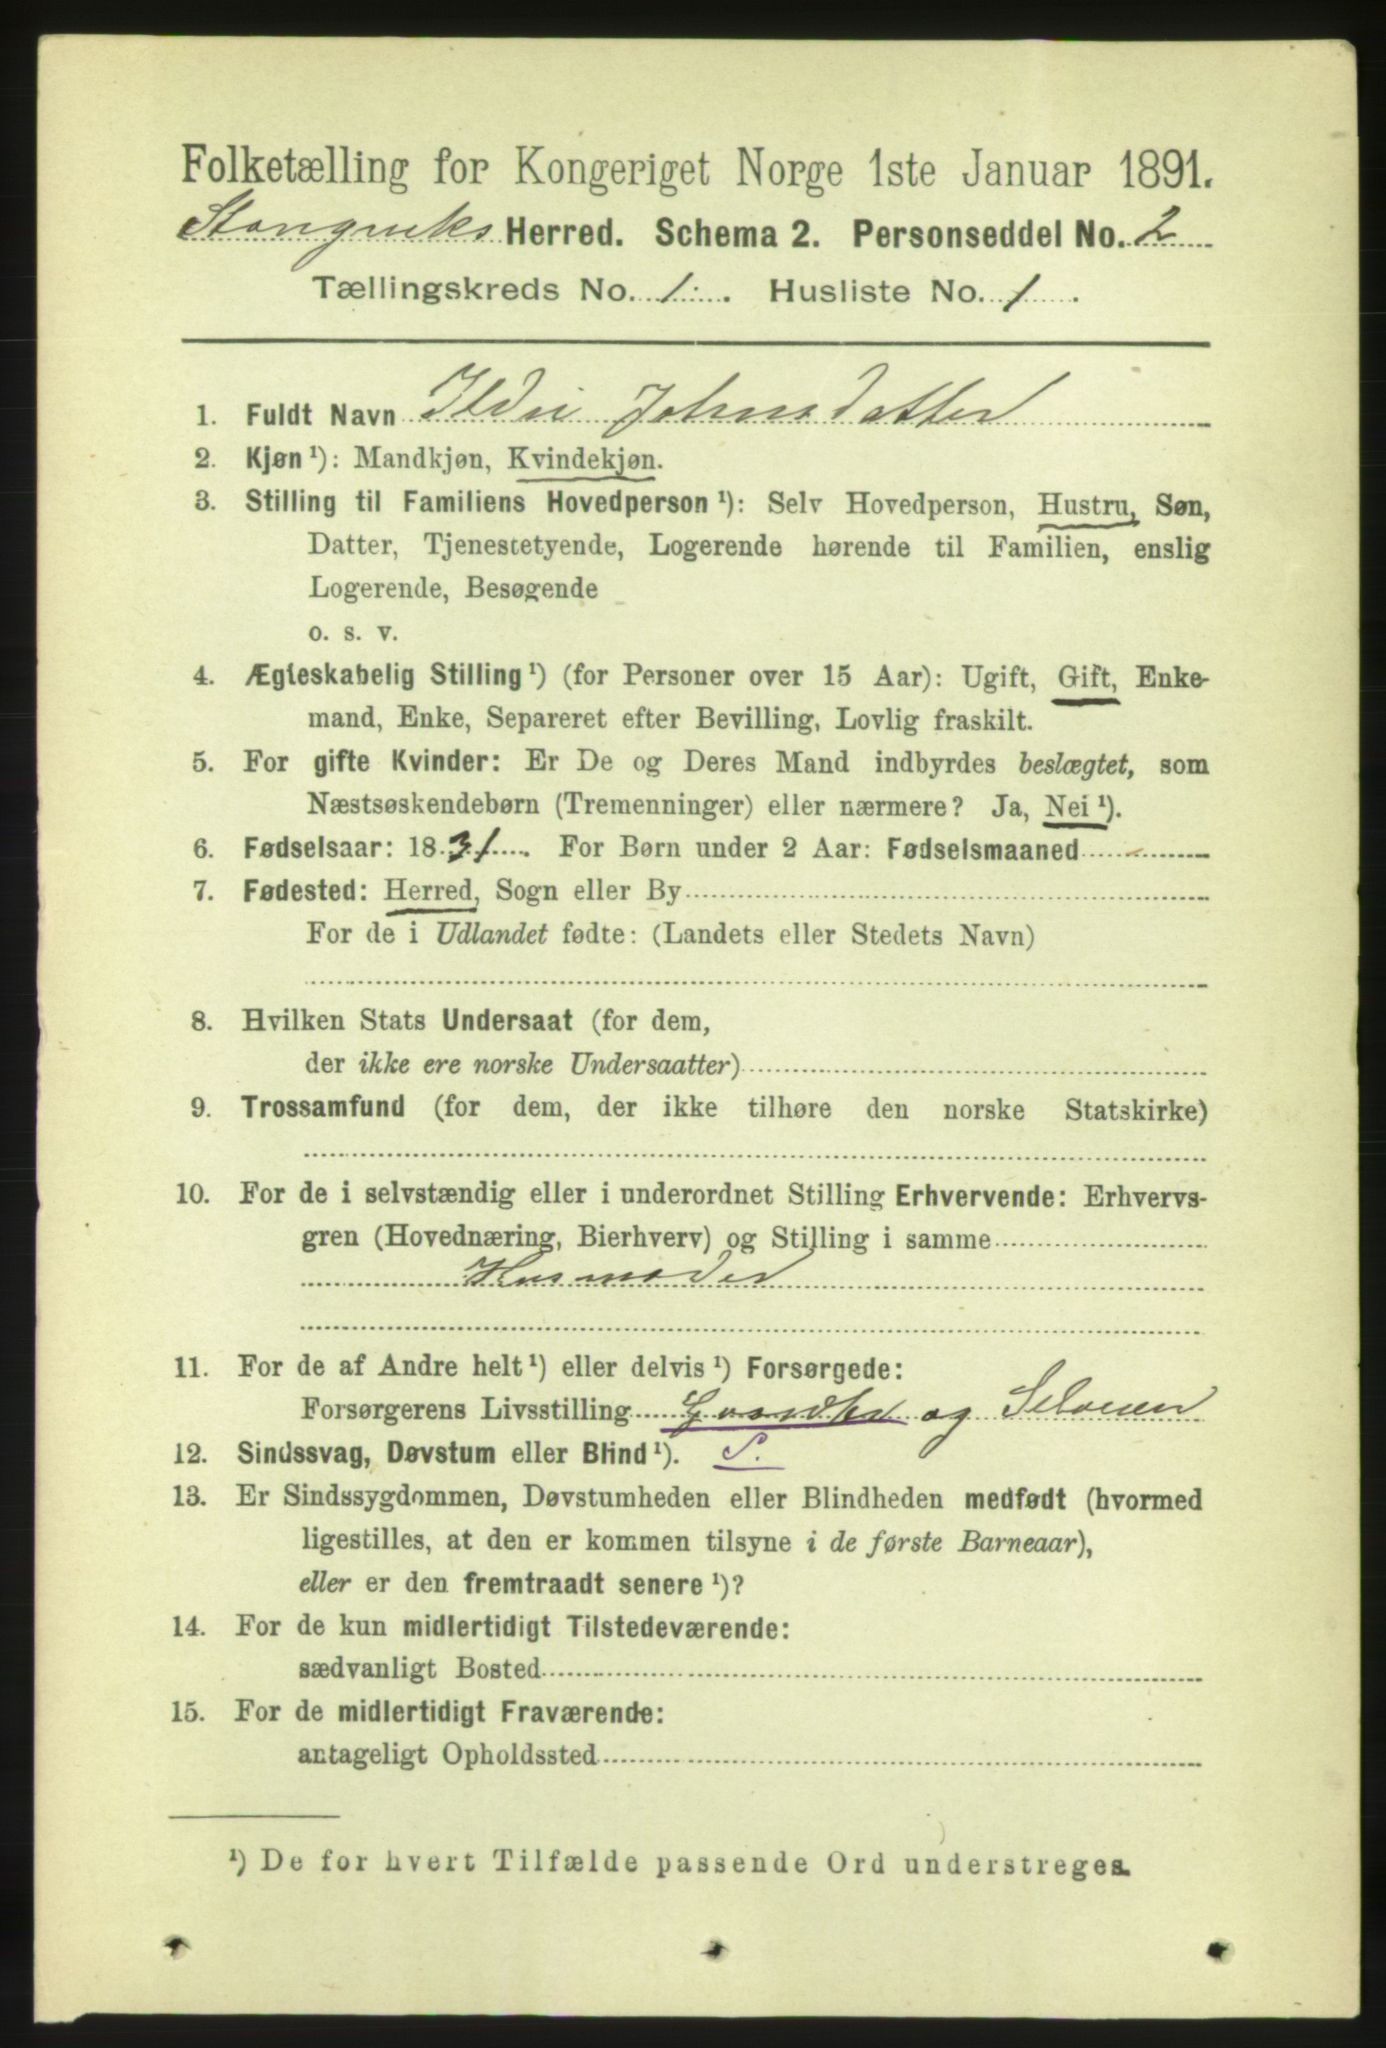 Folketælling for Kongeriget Norge 1ste Januar 1891.
Stangviks Herred. Schema 2. Personseddel No. 2
Tællingskreds No. 1. Husliste No. 1.
1. Fuldt Navn Ildri Johnsdatter
2. Kjøn ¹): Mandkjøn, Kvindekjøn.
3. Stilling til Familiens Hovedperson ¹): Selv Hovedperson, Hustru, Søn,
Datter, Tjenestetyende, Logerende hørende til Familien, enslig
Logerende, Besøgende
o. s. v.
4. Ægteskabelig Stilling ¹) (for Personer over 15 Aar): Ugift, Gift, Enke-
mand, Enke, Separeret efter Bevilling, Lovlig fraskilt.
5. For gifte Kvinder: Er De og Deres Mand indbyrdes beslægtet, som
Næstsøskendebørn (Tremenninger) eller nærmere? Ja, Nei ¹).
6. Fødselsaar: 1831. For Børn under 2 Aar: Fødselsmaaned
7. Fødested: Herred, Sogn eller By
For de i Udlandet fødte: (Landets eller Stedets Navn)
8. Hvilken Stats Undersaat (for dem,
der ikke ere norske Undersaatter)
9. Trossamfund (for dem, der ikke tilhøre den norske Statskirke)
10. For de i selvstændig eller i underordnet Stilling Erhvervende: Erhvervs-
gren (Hovednæring, Bierhverv) og Stilling i samme
Husmoder
11. For de af Andre helt ¹) eller delvis ¹) Forsørgede:
Forsørgerens Livsstilling Gaardbr og Seloeier
12. Sindssvag, Døvstum eller Blind ¹). S.
13. Er Sindssygdommen, Døvstumheden eller Blindheden medfødt (hvormed
ligestilles, at den er kommen tilsyne i de første Barneaar),
eller er den fremtraadt senere ¹)?
14. For de kun midlertidigt Tilstedeværende:
sædvanligt Bosted
15. For de midlertidigt Fraværende:
antageligt Opholdssted
¹) De for hvert Tilfælde passende Ord understreges.